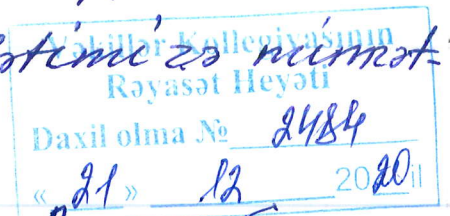 Vəkillər Kollegiyasının
Rəyasət Heyəti
Daxil olma № 2484
« 21 » 12 2020 il